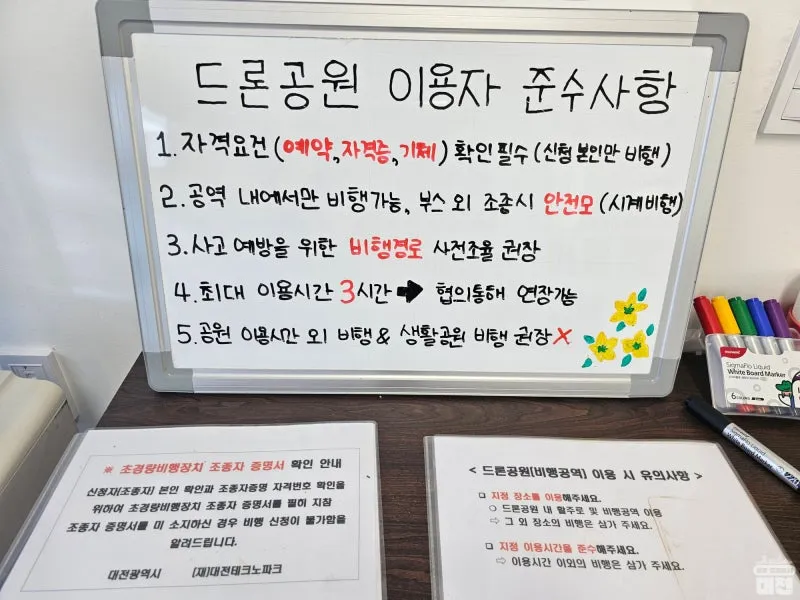 드론공원 이용자 준수사항
1. 자격요건 (예약, 자격증, 기체) 확인필수 (신청 본인만 비행)
2. 공역 내에서만 비행가능, 부스 외 조종시 안전모 (시계비행)
3. 사고 예방을 위한 비행경로 사전조율 권장
4. 최대 이용시간 3시간 → 협의통해 연장가능
5. 공원 이용시간 외 비행 & 생활공원 비행 권장 X
SigmaFlo Liquid
White Board Marker
6 COLORS
White Board Mar
※ 초경량비행장치 조종자 증명서 확인 안내
신청자(조종자) 본인 확인과 조종자증명 자격번호 확인을
위하여 초경량비행장치 조종자 증명서를 필히 지참
조종자 증명서를 미 소지하신 경우 비행 신청이 불가함을
알려드립니다.
대전광역시 (재)대전테크노파크
< 드론공원(비행공역) 이용 시 유의사항 >
□ 지정 장소를 이용해주세요.
○ 드론공원 내 활주로 및 비행공역 이용
⇨ 그 외 장소의 비행은 삼가 주세요.
□ 지정 이용시간을 준수해주세요.
⇨ 이용시간 이외의 비행은 삼가 주세요.